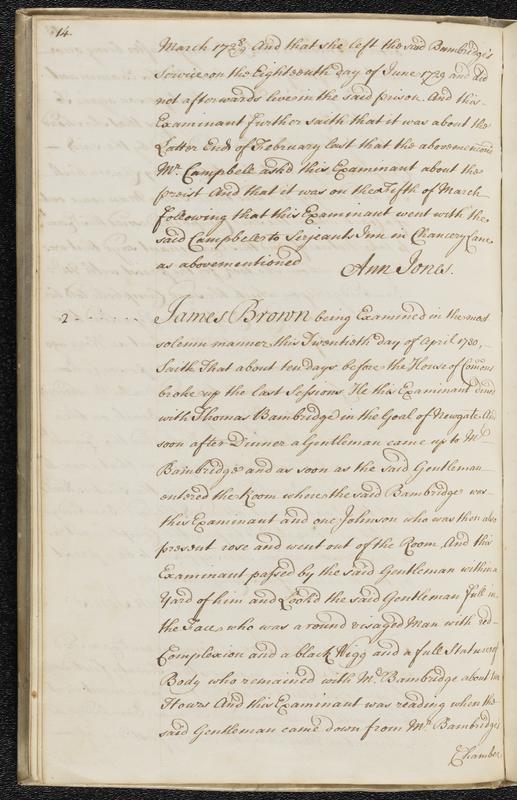 14.
March 1728/9 And that she left the said Bambridge's
Service on the Eighteenth day of June 1729 and did
not afterwards live in the said prison. And this
Examinant further saith that it was about the
Latter End of February last that the abovemencōned
Mr. Campbell ask'd this Examinant about the
preist And that it was on the Fifth of March
following that this Examinant went with the
said Campbell to Serjeants Inn in Chancery Lane
as abovementioned Ann Jones.
2 James Brown being Examined in the most
solemn manner this Twentieth day of April 1730,
Saith That about ten days before the House of Com̄ons
broke up the last Sessions He this Examinant din'd
with Thomas Bambridge in the Goal of Newgate And
soon after Dinner a Gentleman came up to Mr.
Bambridge and as soon as the said Gentleman
entered the Room where the said Bambridge was
this Examinant and one Johnson who was then also
present rose and went out of the Room, And this
Examinant passed by the said Gentleman within a
Yard of him and Look'd the said Gentleman full in
the Face, who was a round visaged Man with red
Complexion and a black Wigg and a full Stature of
Body who remained with Mr. Bambridge about two
Hours And this Examinant was reading when the
said Gentleman came down from Mr. Bambridges
Chamber